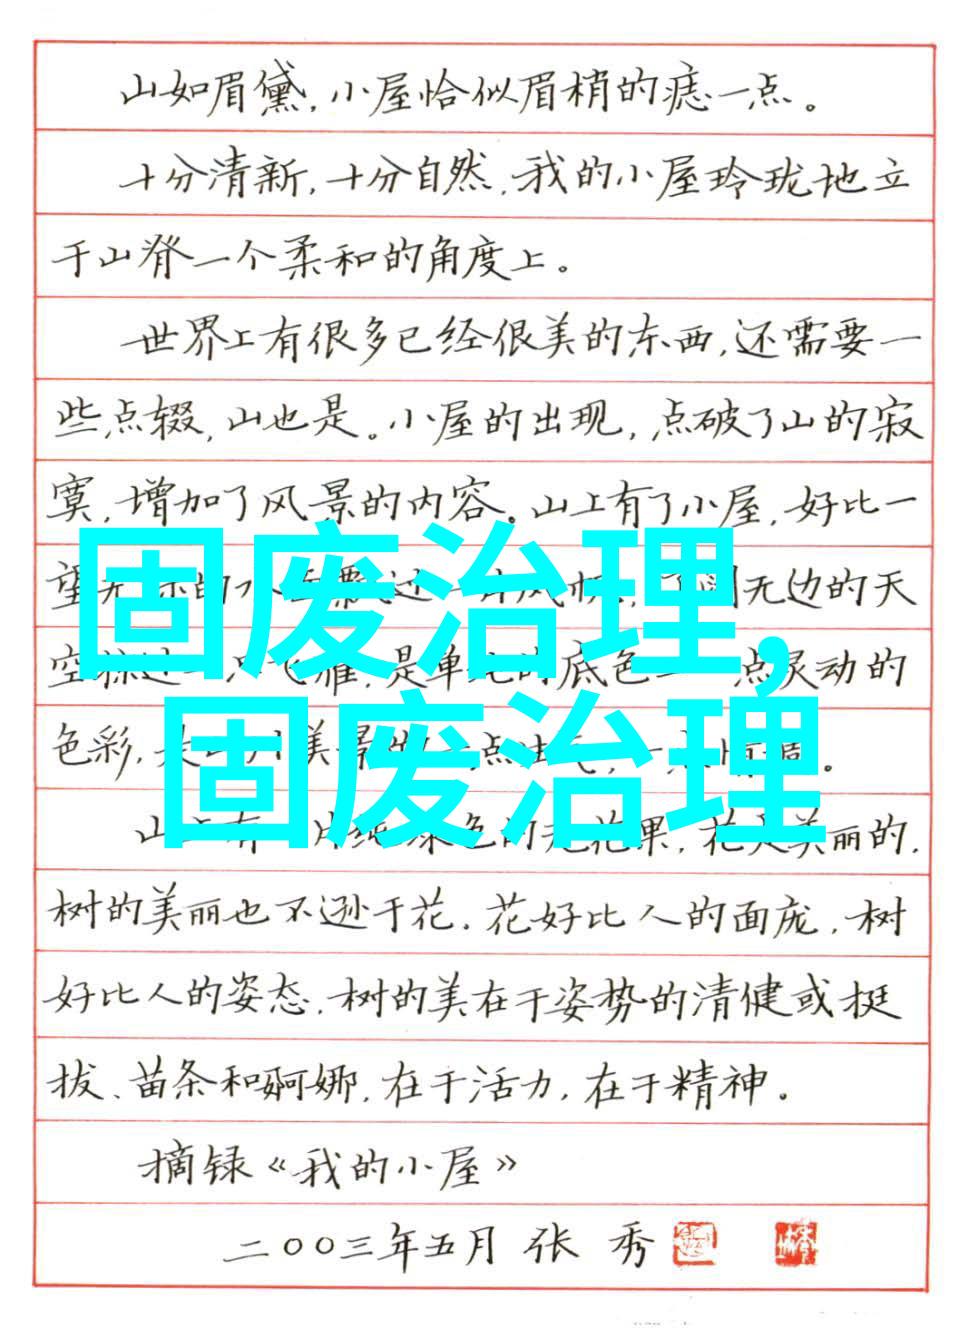 山如眉黛,小屋恰似眉梢的痣一点。
十分清新,十分自然,我的小屋玲珑地立
于山脊一个柔和的角度上。
世界上有很多已经很美的东西,还需要一
些点缀,山也是。小屋的出现,点破了山的寂
寞,增加了风景的内容。山上有了小屋,好比一
望无 的 过 无边的天
固废治理,
空 是单 的底色 点灵动的
色彩, 美 点
固废治理
山上有一片纯绿色的无花果,花是美丽的,
树的美丽也不逊于花。花好比人的面庞,树
好比人的姿态,树的美在于姿势的清健或挺
拔、苗条和婀娜,在于活力,在于精神。
摘录《我的小屋》
二〇〇三年五月 张 秀